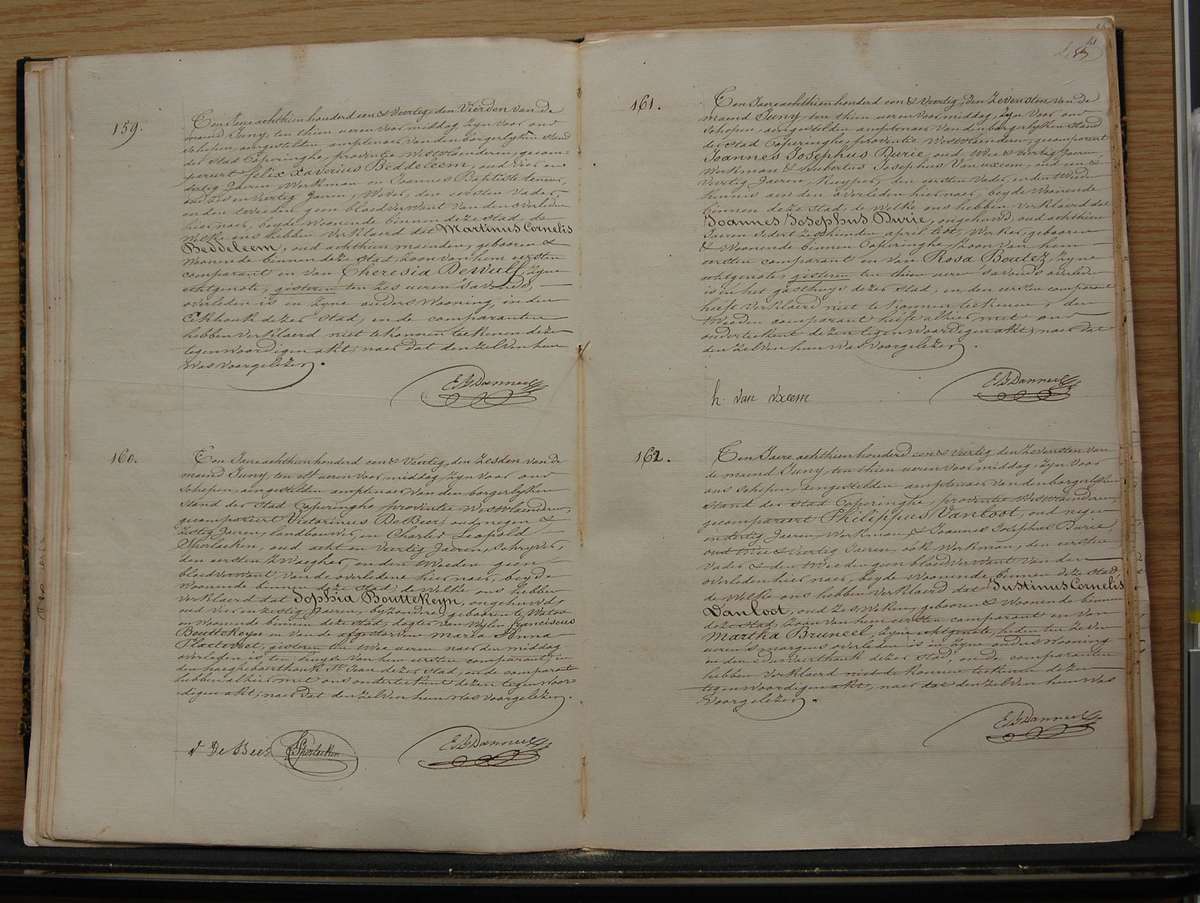 159.
Een Jare achthien honderd een & Veertig, den Vierden van de
maend Juny, ten thien ueren voor middag, zyn voor ons
schepen, aengestelden amptenaer van den borgerlyken stand
der stad Poperinghe, provintie Westvlaenderen, gecom-
pareert felix Xaverius Beddeleem, oud vier en
dertig Jaeren, Werkman en Joannes Baptiste
en Veertig Jaeren, den eersten Vader
en den tweeden geen bloedverwant van den overleden
hier naer, beyde Woonende binnen deze stad, de
Welke ons hebben Verklaerd dat Martinus Cornelis
Beddeleem, oud achthien maenden, gebooren &
Woonende binnen deze stad, zoon van hem eersten
comparant en van Theresia Dewulf, zyne
echtgenote, gisteren ten zes ueren s'avonds,
overleden is in zyne ouders Wooning, in den
Eekhoek dezer stad, en de comparanten
hebben verklaerd niet te konnen teekenen deze
tegenwoordigen akt, naer dat den zelven hun
Was voorgelezen.
160.
Een Jare achthien honderd een & Veertig, den Zesden van de
maend Juny, ten elf ueren voor middag, zyn voor ons
schepen, aengestelden amptenaer van den borgerlyken
Stand der Stad Poperinghe, provintie Westvlaenderen,
gecompareert Victorinus De Beer, oud negen &
Zestig Jaeren, landbouwer, en Charles Leopold
Sporlecken, oud acht en Veertig Jaeren, Schryver,
den eersten Zwaegher, en den Tweeden geen
bloedverwant van de overledene hier naer, beyde
Woonende binnen deze stad, de Welke ons hebben
Verklaerd dat Sophia Bouttekeyn, ongehuwd,
oud vier en zestig Jaeren, byzondere, gebooren te Watou
en Woonende binnen deze stad, dogter van Wylen Franciscus
Bouttekeyn en van de Maria Anna
Placevoet, gisteren ten twee ueren naer den middag
overleden is ten huyze van hem eersten comparant, in
den dezer stad, en de comparanten
hebben alhier met ons onderteekent dezen tegenwoor-
digen akt, naer dat den zelven hun Was Voorgelezen.
v De Beer
161.
Een Jare achthien honderd een & Veertig, den Zevensten van de
maend Juny, ten thien ueren voor middag, zyn voor ons
schepen, aengestelden amptenaer van den borgerlyken stand
der stad Poperinghe, provintie Westvlaenderen, gecompareert
Joannes Josephus Durie, oud twee & Veertig Jaeren,
Werkman & Hubertus Josephus Van uxeem, oud een &
Veertig Jaeren, Kuyper, den eersten Vader, en den tweeden
kennis aen den overleden hier naer, beyde Woonende
binnen deze stad, de Welke ons hebben Verklaerd dat
Joannes Josephus Durie, ongehuwd, oud achthien
Jaeren sedert april lest, Werker, gebooren
& Woonende binnen Poperinghe, zoon van hem
eersten comparant en van Rosa Boutez, zyne
echtgenote, gisteren ten thien ueren s'avonds overleden
is in het gasthuys dezer stad, en den eersten comparant
heeft verklaerd niet te konnen teekenen, den
Tweeden comparant heeft alhier met ons
onderteekent dezen tegenwoordigen akt, naer dat
den zelven hun Was Voorgelezen.
h. Van uxeem
162.
Een Jaere achthien honderd een & Veertig, den Zevensten van
de maend Juny, ten thien ueren voor middag, zyn voor
ons schepen, aengestelden amptenaer van den borgerlyken
Stand der stad Poperinghe, provintie Westvlaenderen,
gecompareert Philippus Vanloot, oud negen
en dertig Jaeren, Werkman, & Joannes Josephus Durie,
oud twee & Veertig Jaeren, ook Werkman, den eersten
Vader & den tweeden geen bloedverwant van den
overleden hier naer, beyde Woonende binnen deze stad,
de Welke ons hebben Verklaerd dat Justinus Cornelis
Vanloot, oud zes Weken, gebooren & Woonende binnen
deze stad, zoon van hem eersten comparant en van
Martha Bruneel, zyne echtgenote, heden ten zeven
ueren s'morgens overleden is in zyne ouders Wooning
in den dezer stad, en de comparanten
hebben Verklaerd niet te konnen teekenen dezen
tegenwoordigen akt, naer dat den zelven hun Was
Voorgelezen.